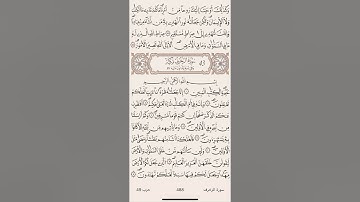 وَكَذَٰلِكَ أَوْحَيْنَا إِلَيْكَ رُوحًا مِّنْ أَمْرِنَا مَا كُنتَ تَدْرِي مَا الْكِتَابُ
وَلَا الْإِيمَانُ وَلَٰكِن جَعَلْنَاهُ نُورًا نَّهْدِي بِهِ مَن نَّشَاءُ مِنْ عِبَادِنَا
وَإِنَّكَ لَتَهْدِي إِلَىٰ صِرَاطٍ مُّسْتَقِيمٍ ٥٢ صِرَاطِ اللَّهِ الَّذِي لَهُ
مَا فِي السَّمَاوَاتِ وَمَا فِي الْأَرْضِ أَلَا إِلَى اللَّهِ تَصِيرُ الْأُمُورُ ٥٣
سورة الزخرف
بِسْمِ اللَّهِ الرَّحْمَٰنِ الرَّحِيمِ
حم ١ وَالْكِتَابِ الْمُبِينِ ٢ إِنَّا جَعَلْنَاهُ قُرْآنًا عَرَبِيًّا لَّعَلَّكُمْ
تَعْقِلُونَ ٣ وَإِنَّهُ فِي أُمِّ الْكِتَابِ لَدَيْنَا لَعَلِيٌّ حَكِيمٌ ٤
أَفَنَضْرِبُ عَنكُمُ الذِّكْرَ صَفْحًا أَن كُنتُمْ قَوْمًا مُّسْرِفِينَ ٥
وَكَمْ أَرْسَلْنَا مِن نَّبِيٍّ فِي الْأَوَّلِينَ ٦ وَمَا يَأْتِيهِم مِّن نَّبِيٍّ إِلَّا كَانُوا
بِهِ يَسْتَهْزِئُونَ ٧ فَأَهْلَكْنَا أَشَدَّ مِنْهُم بَطْشًا وَمَضَىٰ مَثَلُ
الْأَوَّلِينَ ٨ وَلَئِن سَأَلْتَهُم مَّنْ خَلَقَ السَّمَاوَاتِ وَالْأَرْضَ
لَيَقُولُنَّ خَلَقَهُنَّ الْعَزِيزُ الْعَلِيمُ ٩ الَّذِي جَعَلَ لَكُمُ الْأَرْضَ
مَهْدًا وَجَعَلَ لَكُمْ فِيهَا سُبُلًا لَّعَلَّكُمْ تَهْتَدُونَ ١٠
سورة الزخرف 489 حزب 49